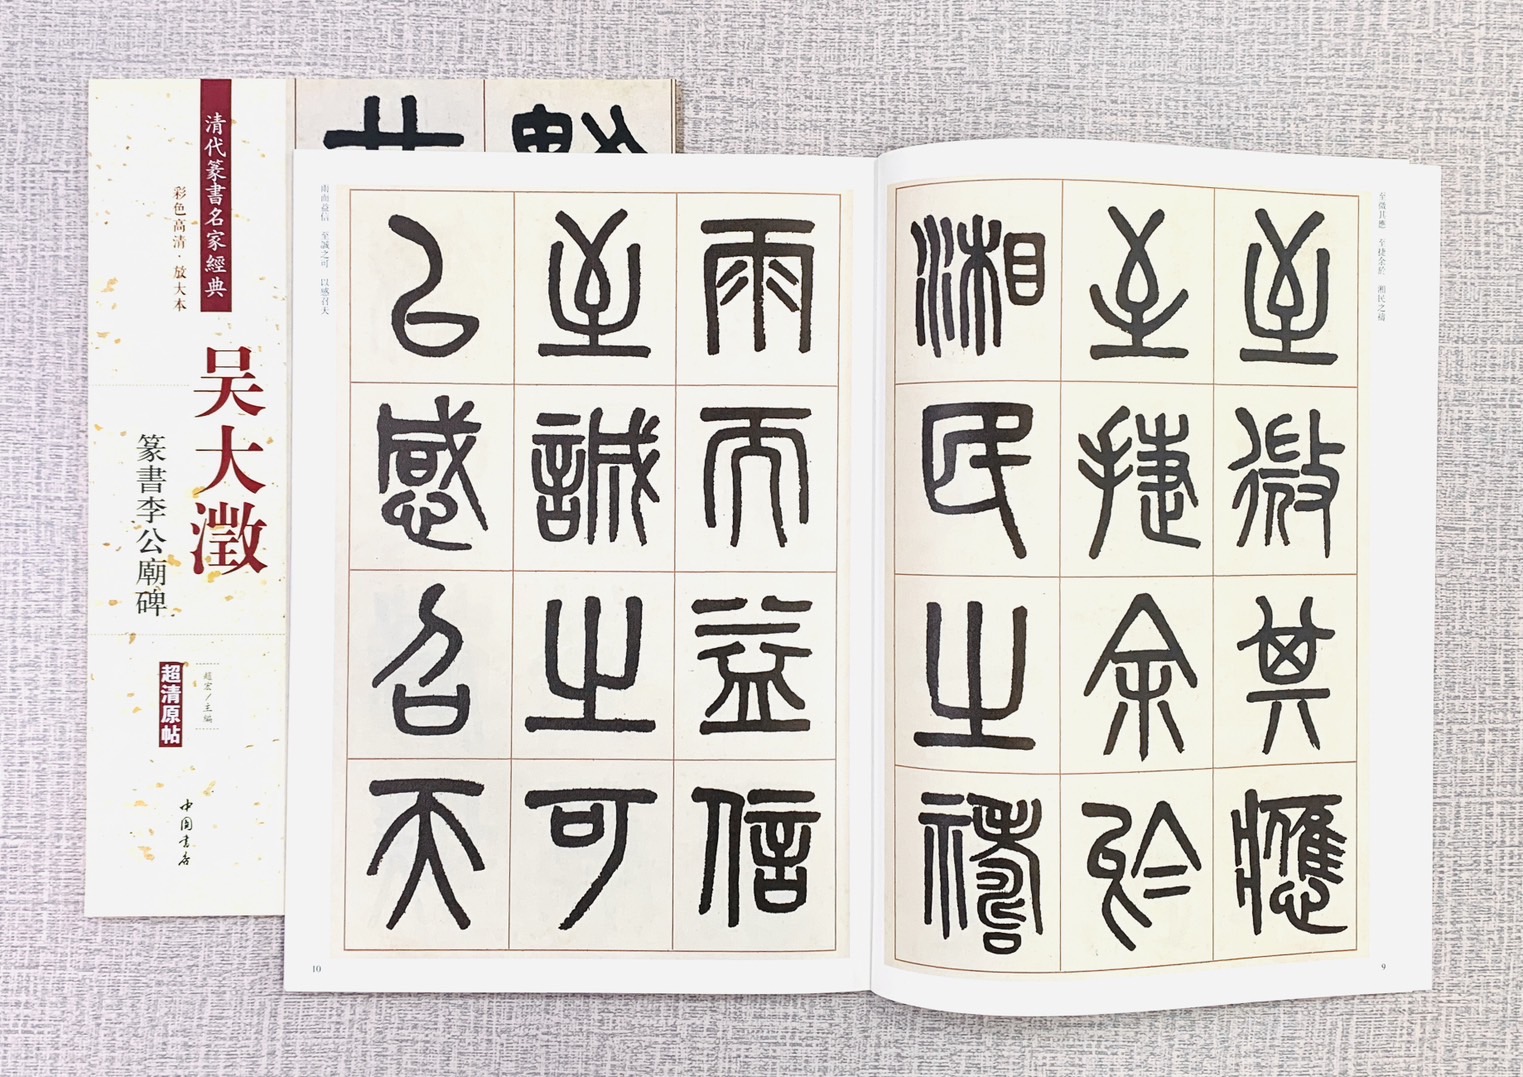 清代篆書名家經典
彩色高清·放大本
吴大澂
篆書李公廟碑
超清原帖
趙宏/主編
中国書店
至微其應 至捷余於 湘民之禱
至微其應
至捷余於
湘民之禱
9
雨而益信
至誠之可
以感召天
雨而益信 至誠之可 以感召天
10